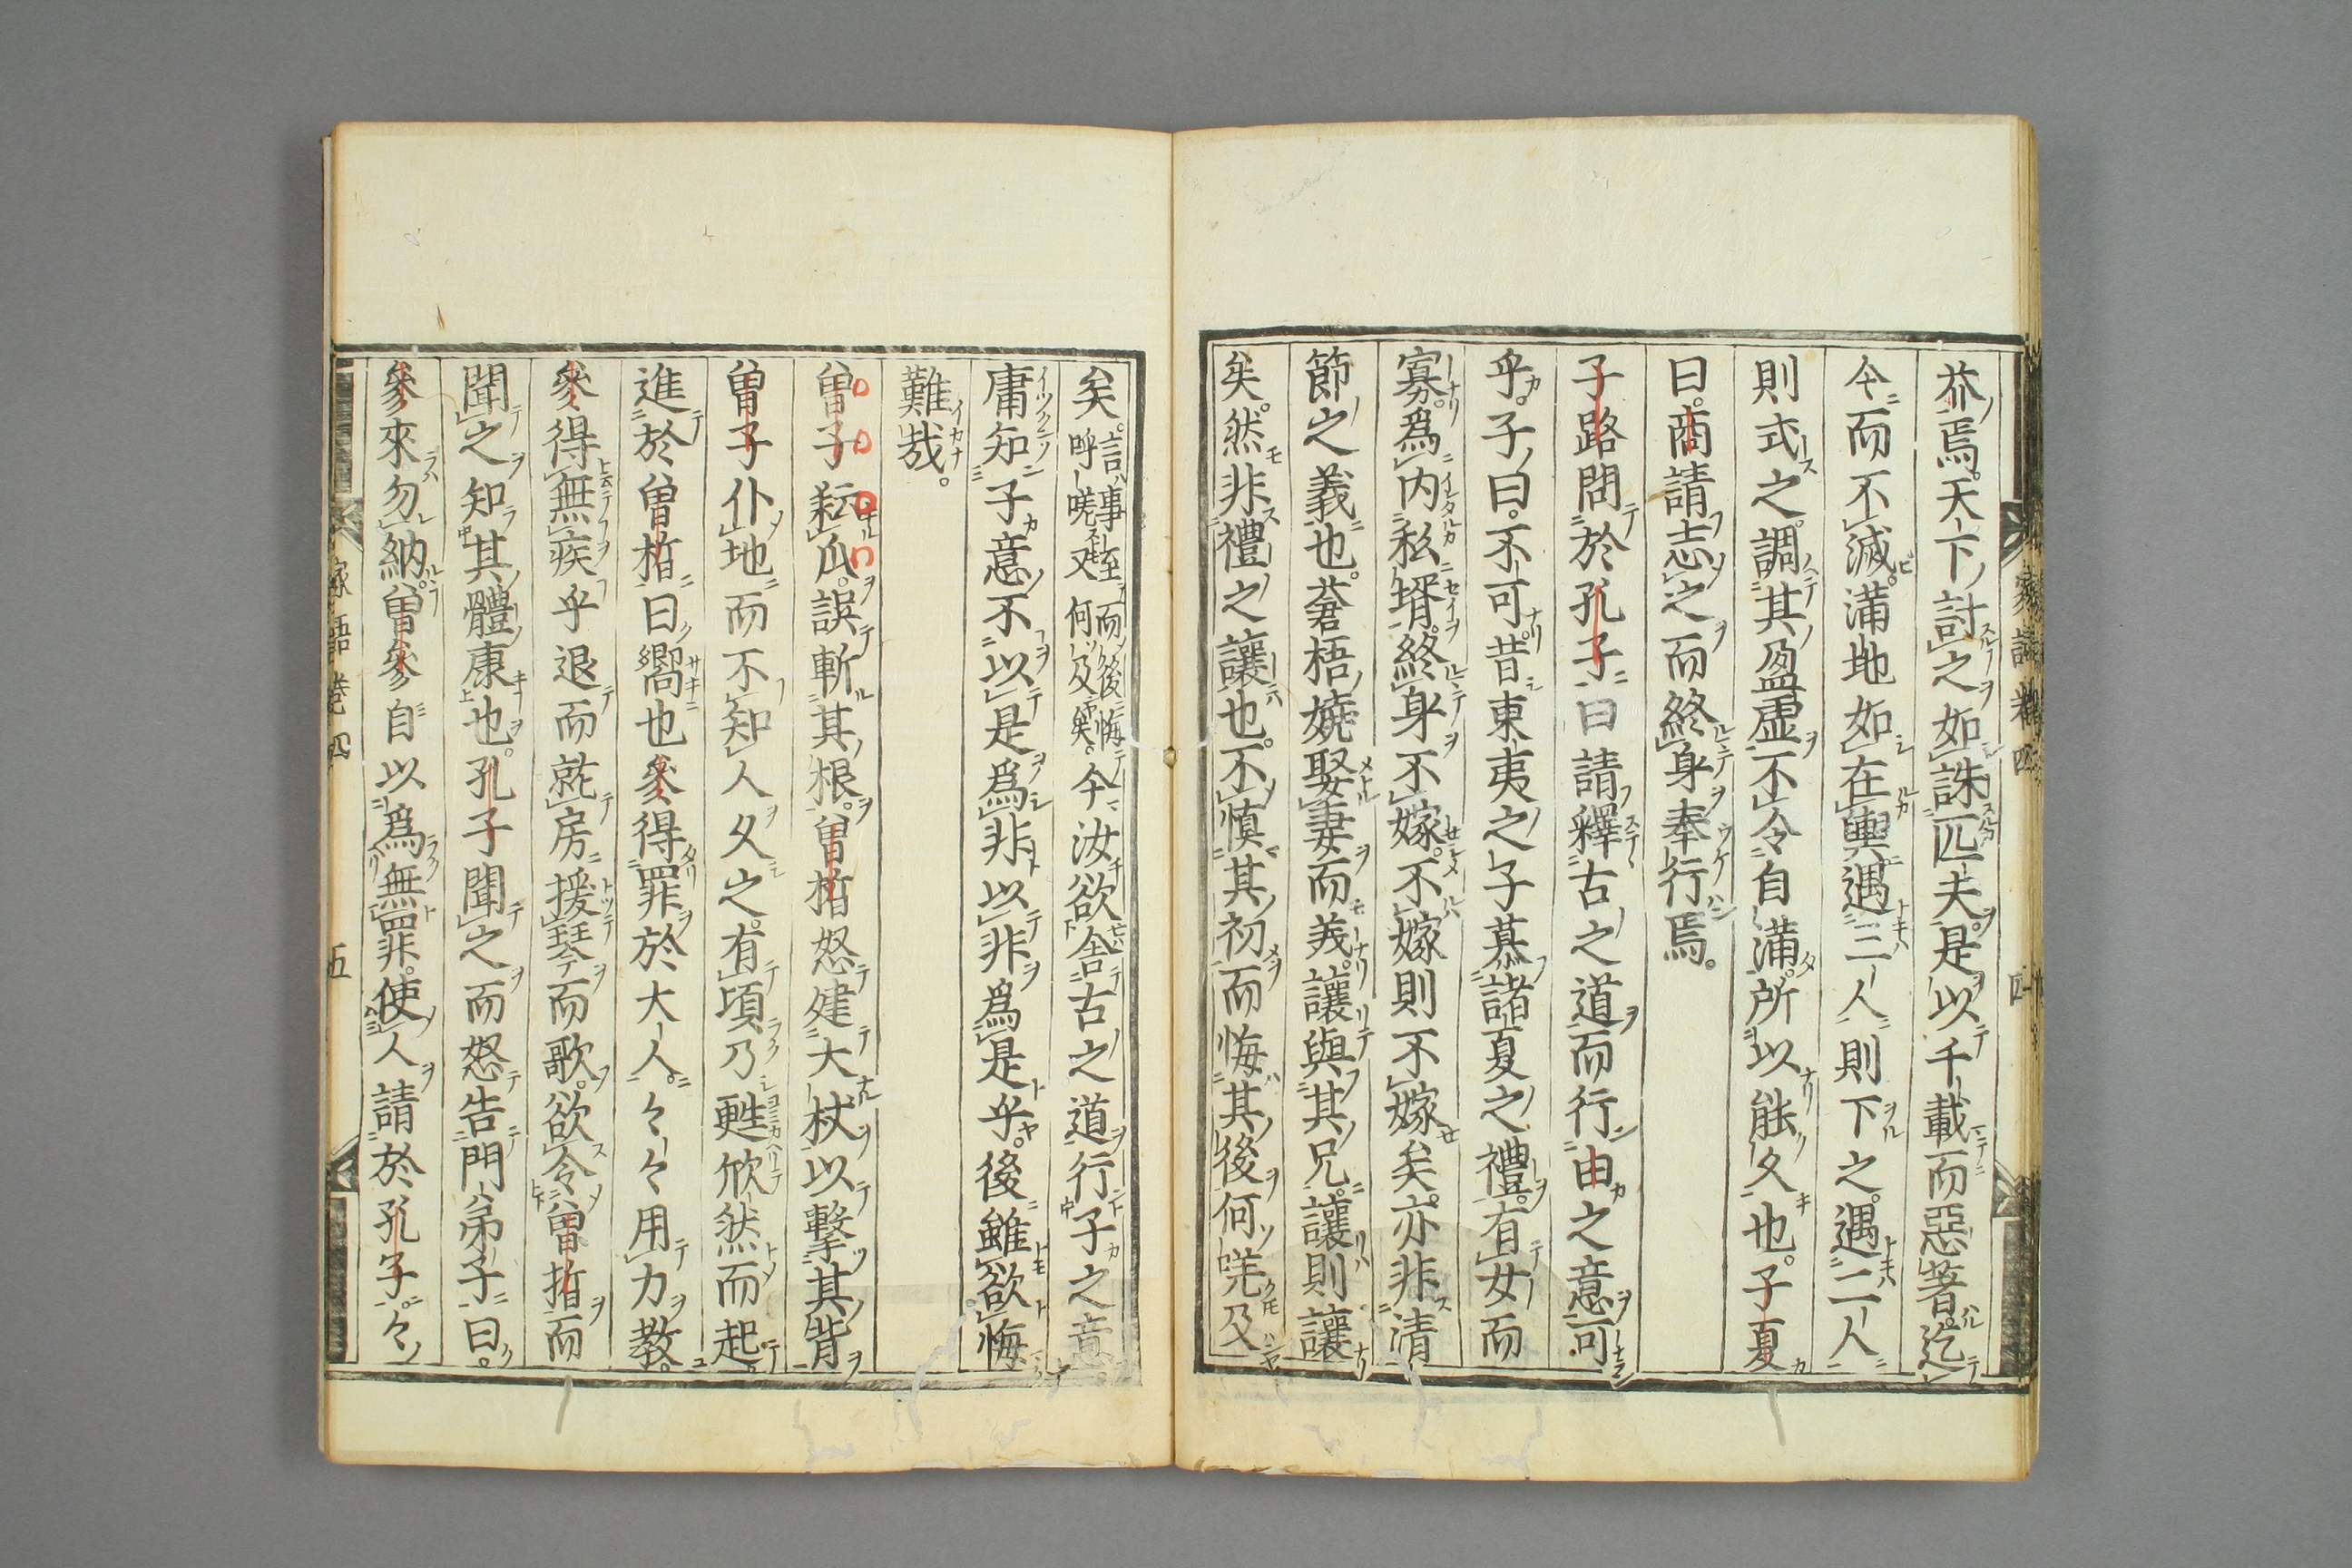 芥焉。天下討之如誅匹夫。是以千載而惡著。迄
今而不滅。滿地如在輿遇三人則下之。遇二人
則式之。調其盈虛。不令自滿。所以能久也。子夏
曰。商請志之而終身奉行焉。
子路問於孔子曰請釋古之道而行由之意可
乎。子曰。不可昔東夷之子慕諸夏之禮。有女而
寡。爲内私壻。終身不嫁。不嫁則不嫁矣。亦非清
節之義也。蒼梧嬈娶妻而美。讓與其兄。讓則讓
矣。然非禮之讓也。不愼其初而悔其後何嗟及
矣。言事至而後悔吁嗟又何及矣。今汝欲舍古之道行子之意。
庸知子意不以是爲非以非爲是乎。後雖欲悔
難哉。
曽子耘瓜。誤斬其根。曽晳怒建大杖以擊其背
曽子仆地而不知人久之。有頃乃甦欣然而起。
進於曽晳曰嚮也參得罪於大人。々々用力教。
參得無疾乎退而就房援琴而歌。欲令曽晳而
聞之知其體康也。孔子聞之而怒告門弟子曰。
參來勿納。曽參自以爲無罪。使人請於孔子。々
家語卷四
四
家語卷四
五